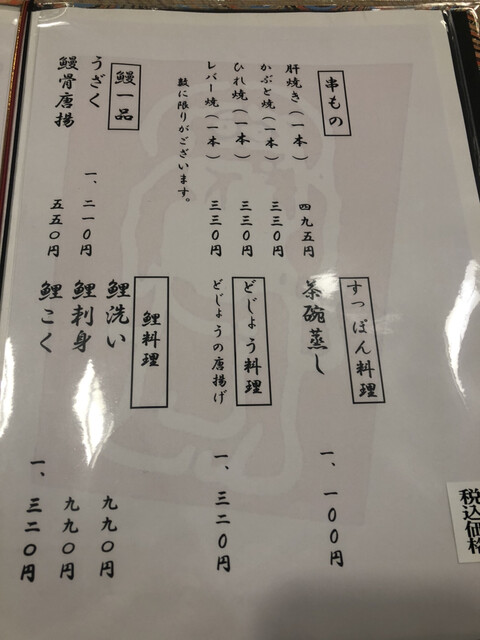 串もの
肝焼き（一本） 四九五円
かぶと焼（一本） 三三〇円
ひれ焼（一本） 三三〇円
レバー焼（一本） 三三〇円
数に限りがございます。
鰻一品
うざく 一、二一〇円
鰻骨唐揚 五五〇円
すっぽん料理
茶碗蒸し 一、一〇〇円
どじょう料理
どじょうの唐揚げ 一、三二〇円
鯉料理
鯉洗い 九九〇円
鯉刺身 九九〇円
鯉こく 一、三二〇円
税込価格